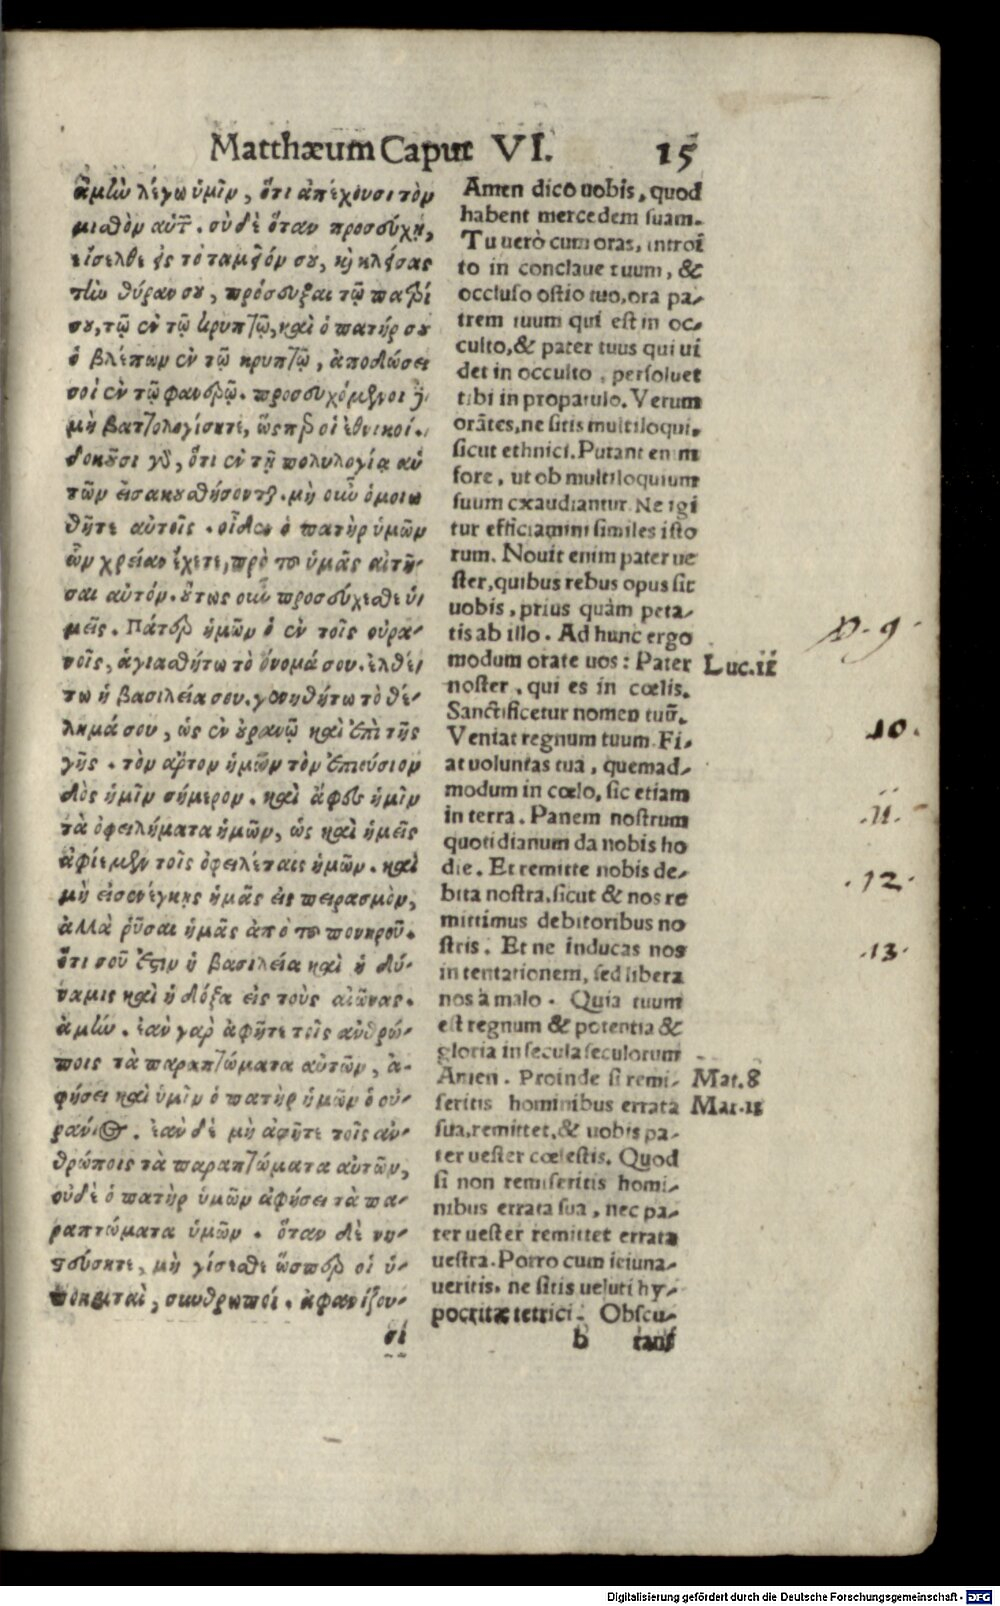 Matthæum Caput VI. 15
ἀμὴν λέγω ὑμῖν, ὅτι ἀπέχουσι τὸν
μισθὸν αὐτῶν. σὺ δὲ ὅταν προσεύχῃ,
εἴσελθε εἰς τὸ ταμεῖόν σου, καὶ κλείσας
τὴν θύραν σου, πρόσευξαι τῷ πατρί
σου, τῷ ἐν τῷ κρυπτῷ, καὶ ὁ πατήρ σου
ὁ βλέπων ἐν τῷ κρυπτῷ, ἀποδώσει
σοὶ ἐν τῷ φανερῷ. προσευχόμενοι δὲ
μὴ βαττολογήσητε, ὥσπερ οἱ ἐθνικοί.
δοκοῦσι γὰρ, ὅτι ἐν τῇ πολυλογίᾳ αὐ
τῶν εἰσακουσθήσονται. μὴ οὖν ὁμοιω
θῆτε αὐτοῖς. οἶδεν ὁ πατὴρ ὑμῶν
ὧν χρείαν ἔχετε, πρὸ τοῦ ὑμᾶς αἰτῆ-
σαι αὐτόν. οὕτως οὖν προσεύχεσθε ὑ
μεῖς. Πάτερ ἡμῶν ὁ ἐν τοῖς οὐρα-
νοῖς, ἁγιασθήτω τὸ ὄνομά σου. ἐλθέ
τω ἡ βασιλεία σου. γενηθήτω τὸ θέ-
λημά σου, ὡς ἐν οὐρανῷ καὶ ἐπὶ τῆς
γῆς. τὸν ἄρτον ἡμῶν τὸν ἐπιούσιον
δὸς ἡμῖν σήμερον. καὶ ἄφες ἡμῖν
τὰ ὀφειλήματα ἡμῶν, ὡς καὶ ἡμεῖς
ἀφίεμεν τοῖς ὀφειλέταις ἡμῶν. καὶ
μὴ εἰσενέγκῃς ἡμᾶς εἰς πειρασμὸν,
ἀλλὰ ῥῦσαι ἡμᾶς ἀπὸ τοῦ πονηροῦ.
ὅτι σοῦ ἐστιν ἡ βασιλεία καὶ ἡ δύ-
ναμις καὶ ἡ δόξα εἰς τοὺς αἰῶνας.
ἀμήν. ἐὰν γὰρ ἀφῆτε τοῖς ἀνθρώ-
ποις τὰ παραπτώματα αὐτῶν, ἀ-
φήσει καὶ ὑμῖν ὁ πατὴρ ὑμῶν ὁ οὐ-
ράνιος. ἐὰν δὲ μὴ ἀφῆτε τοῖς ἀν-
θρώποις τὰ παραπτώματα αὐτῶν,
οὐδὲ ὁ πατὴρ ὑμῶν ἀφήσει τὰ πα-
ραπτώματα ὑμῶν. ὅταν δὲ νη-
στεύητε, μὴ γίνεσθε ὥσπερ οἱ ὑ-
ποκριταὶ, σκυθρωποί. ἀφανίζου-
σι
Amen dico uobis, quod
habent mercedem suam.
Tu uerò cum oras, introi
to in conclaue tuum, &
occluso ostio tuo, ora pa-
trem tuum qui est in oc-
culto, & pater tuus qui ui
det in occulto, persoluet
tibi in propatulo. Verum
orātes, ne sitis multiloqui,
sicut ethnici. Putant enim
fore, ut ob multiloquium
suum exaudiantur. Ne igi
tur efficiamini similes isto
rum. Nouit enim pater ue
ster, quibus rebus opus sit
uobis, prius quàm peta-
tis ab illo. Ad hunc ergo
modum orate uos: Pater
noster, qui es in cœlis.
Sanctificetur nomen tuū.
Veniat regnum tuum. Fi-
at uoluntas tua, quemad-
modum in cœlo, sic etiam
in terra. Panem nostrum
quotidianum da nobis ho
die. Et remitte nobis de-
bita nostra, sicut & nos re
mittimus debitoribus no
stris. Et ne inducas nos
in tentationem, sed libera
nos à malo. Quia tuum
est regnum & potentia &
gloria in secula seculorum
Amen. Proinde si remi-
seritis hominibus errata
sua, remittet, & uobis pa-
ter uester cœlestis. Quod
si non remiseritis homi-
nibus errata sua, nec pa-
ter uester remittet errata
uestra. Porro cum ieiuna-
ueritis, ne sitis ueluti hy-
pocritæ tetrici. Obscu-
b rant
Luc. 11
Mat. 8
Mar. 11
p. 9.
10.
.11.
.12.
.13.
Digitalisierung gefördert durch die Deutsche Forschungsgemeinschaft - DFG